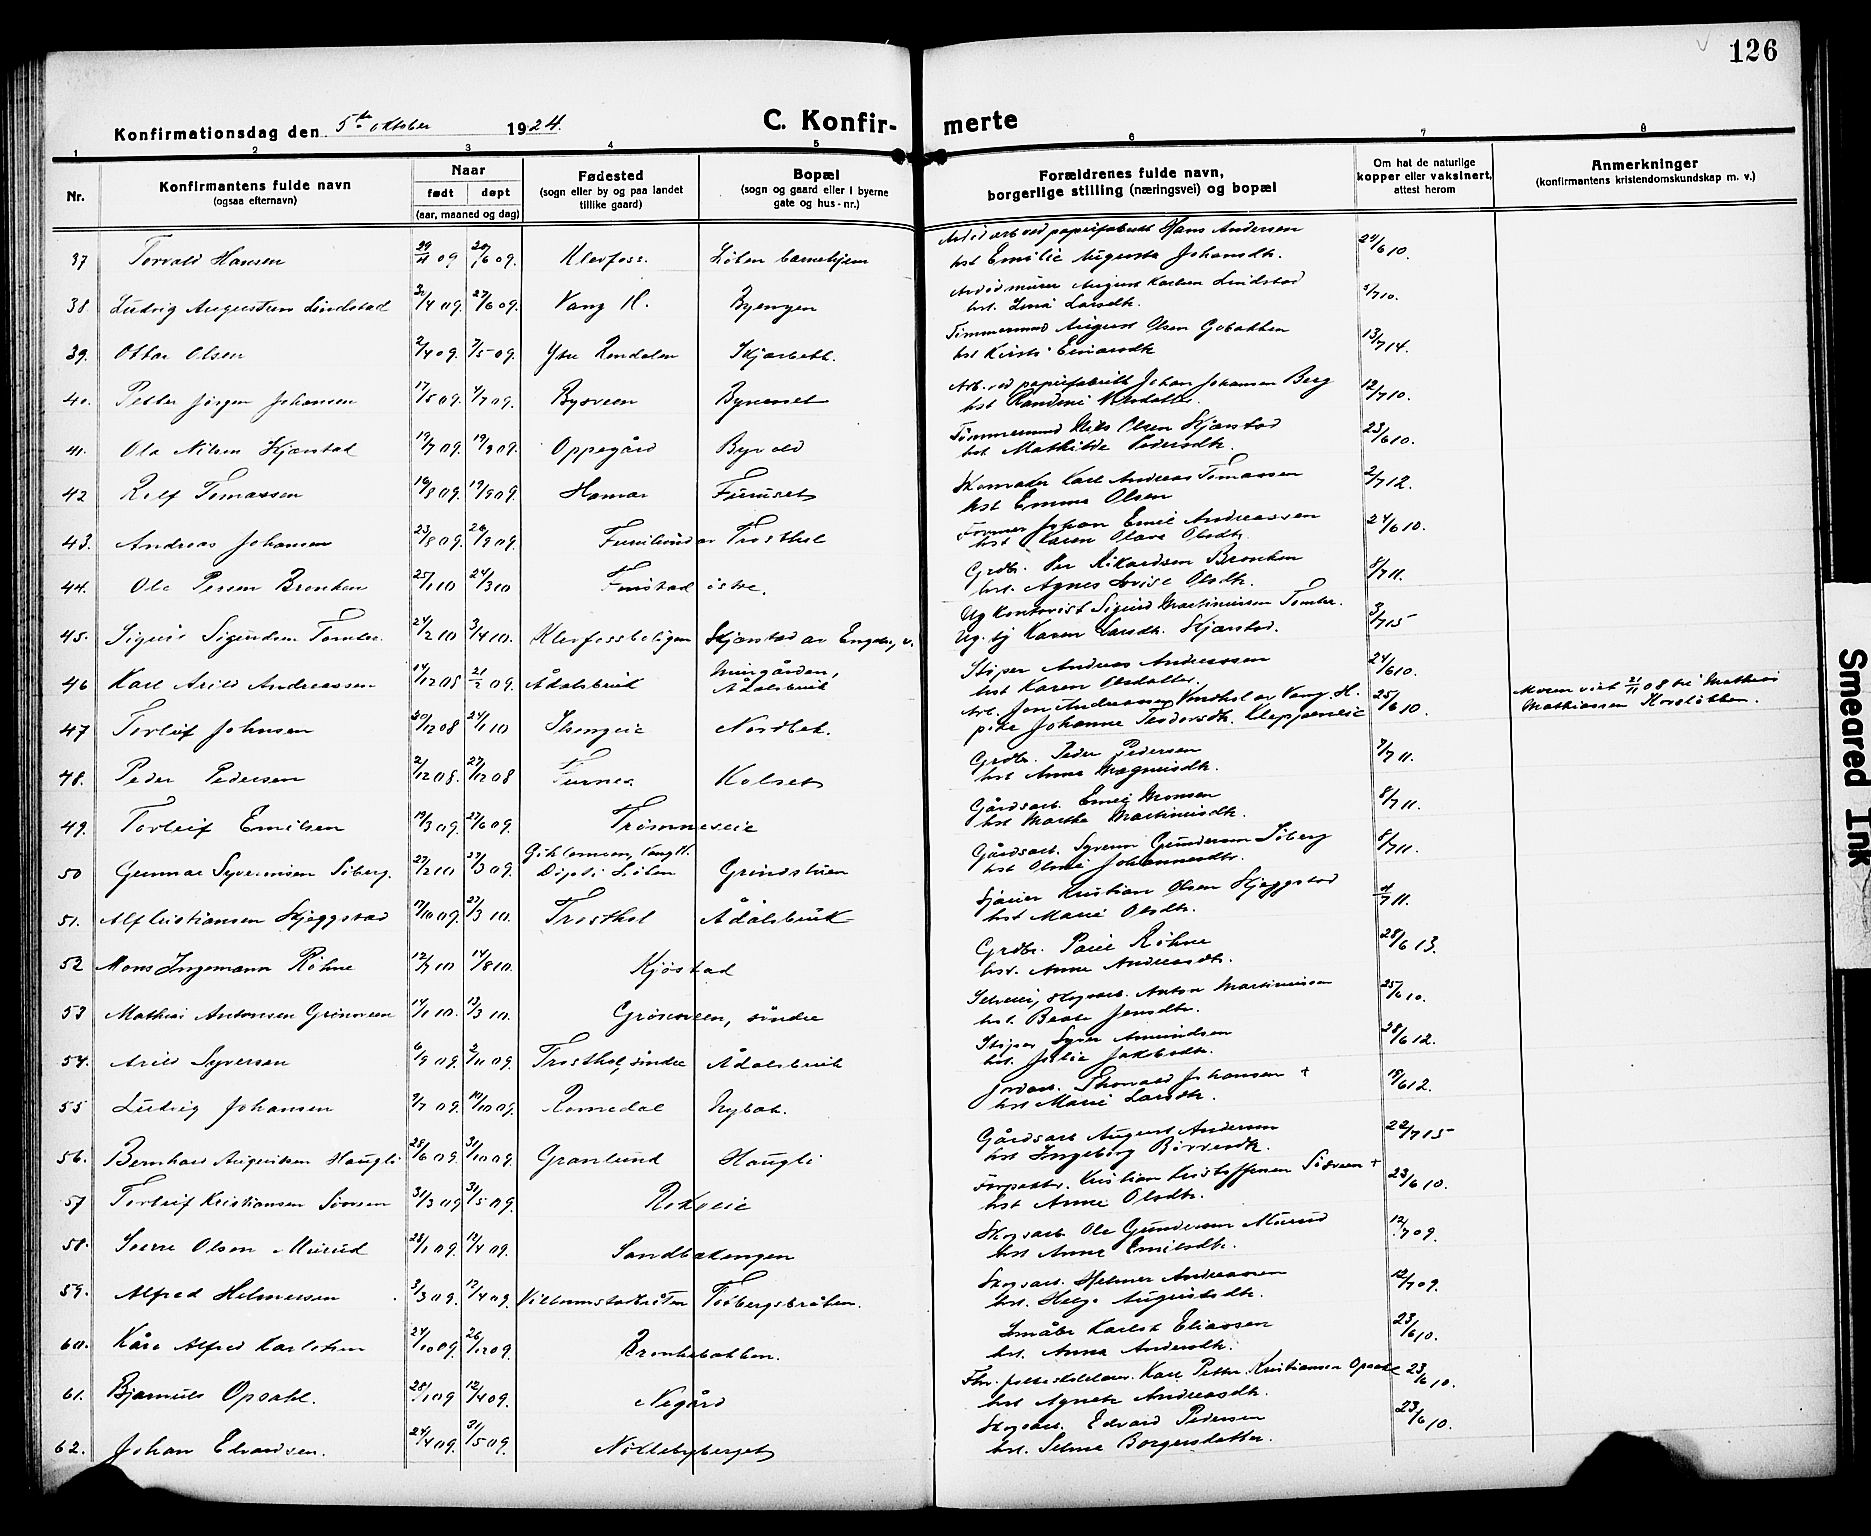 126
Konfirmationsdag den 5te oktober 1924.
C. Konfirmerte
1 2 3 4 5 6 7 8
Nr.
Konfirmantens fulde navn
(ogsaa efternavn)
Naar
født døpt
(aar, maaned og dag)
Fødested
(sogn eller by og paa landet
tillike gaard)
Bopæl
(sogn og gaard eller i byerne
gate og hus-nr.)
Forældrenes fulde navn,
borgerlige stilling (næringsvei) og bopæl
Om hat de naturlige
kopper eller vaksinert,
attest herom
Anmerkninger
(konfirmantens kristendomskundskap m. v.)
37 Torvald Hansen 09 20/6 09. Klevfoss. Løten barnehjem papirfabrikk Hans Andersen hst Emilie Augusta Johansdt. 24/6 10.
38. Ludvig Augustsen Lindstad /4 09. 27/6 09. Vang H. Byengen August Karlsen Lindstad hst. Lina Larsdt. /7 10.
39. Ottar Olsen 2/4 09. 7/5 09. Ytre Rendalen Skjærbekk. Tømmermand August Olsen hst Kirsti Einarsdt. 13/7 14.
40. Petter Jørgen Johansen 17/5 09. 4/7 09. Bysveen Byneset Arb. ved papirfabrikk Johan Johansen Berg hst Randine 12/7 10.
41. Ola Nilsen Kjærstad 19/7 09. 19/9 09. Oppegård Byvold Tømmermand Nils Olsen Skjærstad hst Mathilde Pedersdt. 23/6 10.
42 Rolf Tomassen 19/8 09. 19/9 09. Hamar Furuset Skomaker Karl Andreas Tomassen hst Emma Olsen 2/7 12.
43. Andreas Johansen 23/8 09. 26/9 09. Furulund av Trosthol Former Johan Emil Andreassen hst Karen Olava Olsdt. 24/6 10.
44. Ole Persen Brenken 25/1 10 24/3 10 Finstad østre. Grdbr. Per Rikardsen Brenken hst. Agnes Lovise Olsdt. 8/7 11.
45. Sigurd Sigurdsen Tomter. 24/2 10 3/4 10. Klevfossboligen Skjærstad av Engelv. Ug kontorist Sigurd Martiniussen Tomter. Ug. pj Karen Larsdt. Skjærstad. 3/7 15
46 Karl Arild Andreassen 14/12 08 21/2 09. Ådalsbruk Murgården, Ådalsbruk Støper Andreas Andreassen hst Karen Olsdatter. 24/6 10.
47 Torleif Johnsen 20/12 08 24/1 10 Nordbek. Arb. Jon Andreassen av Vang H. pike Johanne Teodorsdt. Kleppeneie 25/6 10. Moren viet 21/11 08 til Mathias Mathiassen Korsløkken.
48. Peder Pedersen 2/12 08. 27/12 08 Furnes Kolset Grdbr. Peder Pedersen hst Anna Magnusdt. 7/7 11.
49. Torleif Emilsen 19/3 09. 27/6 09. Trømneseie Gårdsarb. Emil hst Marthe Martinusdt. 8/7 11.
50 Gunnar Syversen Siberg. 27/2 10 27/3 09. Vang H. Døpt i Løten Grindstuen Gårdsarb. Syvern Gundersen Siberg hst Oline Johannesdt. 8/7 11.
51. Alf Kristiansen Skjeggstad 17/10 09. 27/3 10. Trosthol Ådalsbruk Kristian Olsen Skjeggstad hst Marie Olsdt. /7 11.
52 Mons Ingemann Røhne 12/7 10 14/8 10. Kjøstad Grdbr. Røhne hst. Anna Andreasdt. 28/6 13.
53 Mathias Antonsen Grønveen 14/1 10. 13/3 10. Grønveen, søndre Selveier, skogsarb. Anton Martiniussen hst. Beate Jensdt. 25/6 10.
54. Arild Syversen 6/9 09. 2/11 09. Trosthol, søndre Ådalsbruk Støper Syver Amundsen hst. Julie Jakobsdt. 28/6 12.
55 Ludvig Johansen 9/7 09. 10/10 09. Romedal Nybak. Jordarb. Thorvald Johansen + hst Marie Larsdt. 18/6 12.
56. Bernhard Augustsen Haugli 28/6 09. 31/10 09. Granlund Haugli Gårdsarb August Andersen hst Ingeborg Børresdt. 22/7 15
57 Torleif Kristiansen Søveen 31/3 09 31/5 09. Rokoeie Forpakter. Kristian Kristoffersen Søveen + hst Anne Olsdt. 23/6 10.
58. Sverre Olsen Mürud 28/1 09. 12/4 09. Sandbakengen Skogsarb Ole Gundersen Mürud hst Anne Emilsdt. 12/7 09.
59. Alfred Helmersen 3/3 09. 12/4 09. Tosbergsbråten. Skogsarb. Helmer Andreassen hst. Helga Augustsdt. 12/7 09.
60. Kåre Alfred Karlsen 24/10 09 26/12 09. Brenkebakken. Småbr Karlst Eliassen hst. Anna Andersdt. 23/6 10.
61. Bjarne Opsahl. 28/1 09 12/4 09. Negård Fhv. Karl Petter Kristiansen Opsahl hst Agnete Andreasdt. 23/6 10.
62. Johan Edvardsen. 24/4 09. 31/5 09. Nøklebyberget Skogsarb. Edvard Pedersen hst. Selma Borgersdatter. 23/6 10.
Smeared Ink